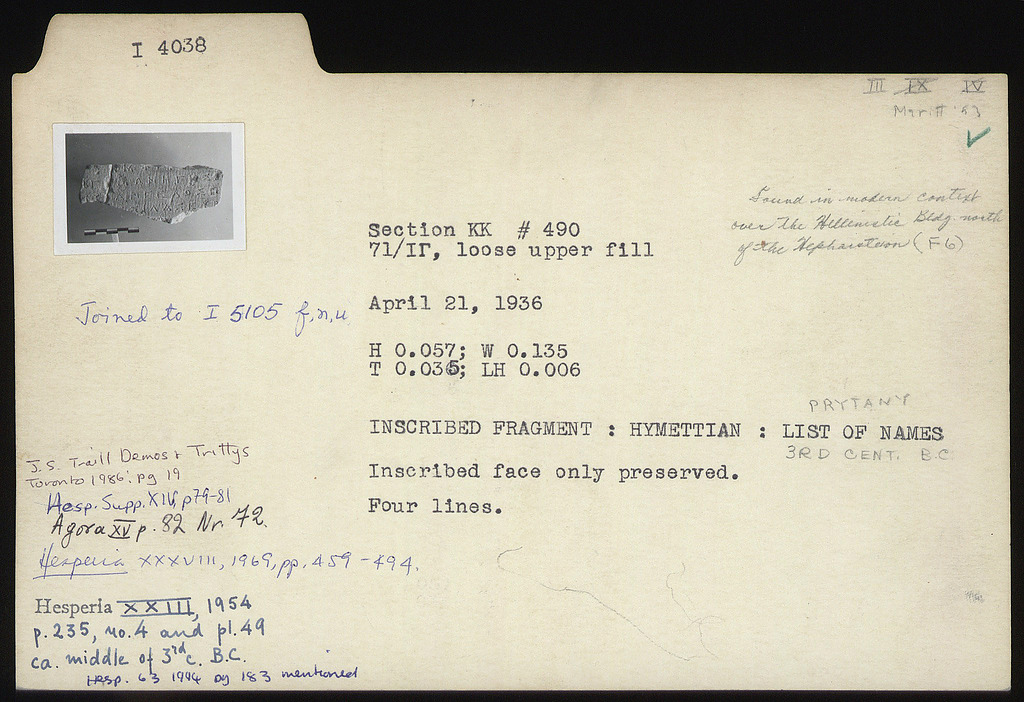 I 4038
III IX IV
Meritt '53
Found in modern context
over the Hellenistic Bldg. north
of the Hephaisteion (F6)
Section KK # 490
71/ΙΓ, loose upper fill
Joined to I 5105 f,n,u
April 21, 1936
H 0.057; W 0.135
T 0.035; LH 0.006
PRYTANY
INSCRIBED FRAGMENT : HYMETTIAN : LIST OF NAMES
3RD CENT. B.C.
Inscribed face only preserved.
Four lines.
J.S. Traill Demos & Trittys
Toronto 1986: pg 19
Hesp. Supp. XIV, p79-81
Agora XV p. 82 Nr. 72.
Hesperia XXXVIII, 1969, pp. 459-494.
Hesperia XXIII, 1954
p. 235, no. 4 and pl. 49
ca. middle of 3rd c. B.C.
Hesp. 63 1994 pg 183 mentioned